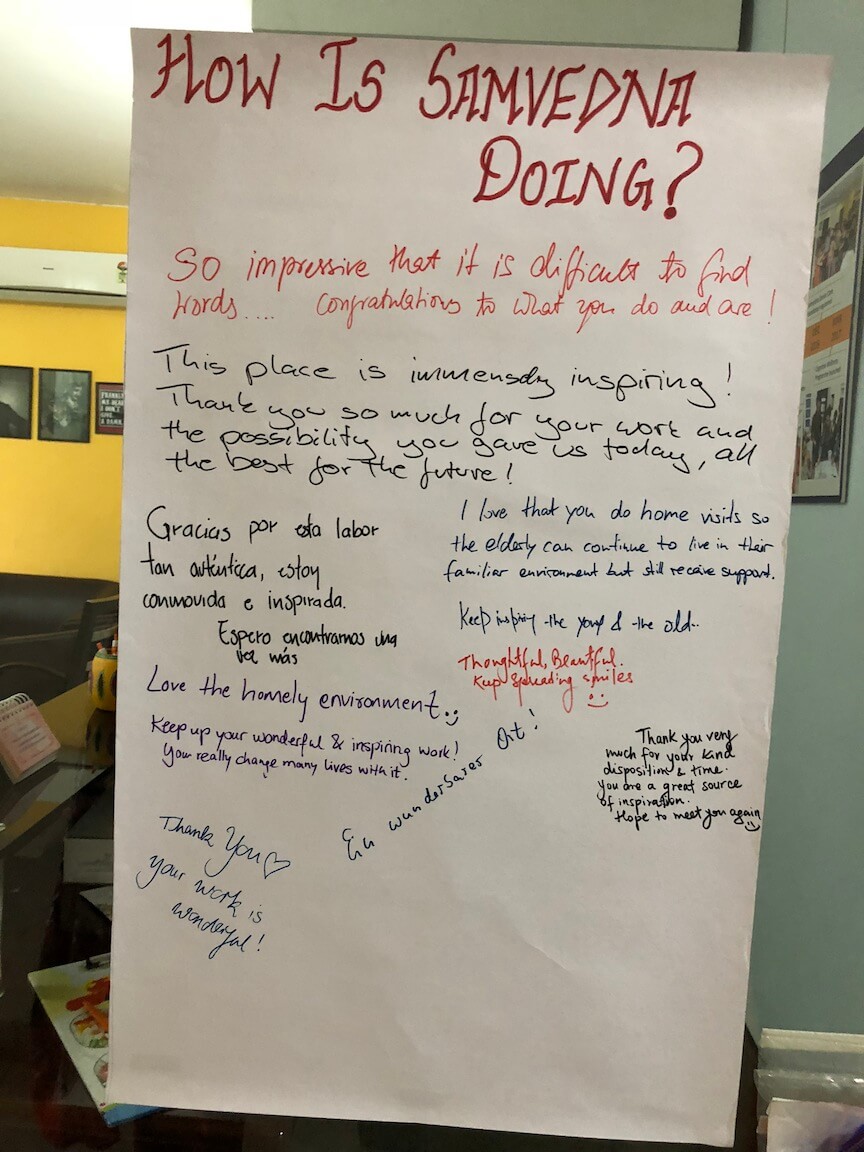 HOW IS SAMVEDNA
DOING?
So impressive that it is difficult to find
words.... Congratulations to what you do and are!
This place is immensely inspiring!
Thank you so much for your work and
the possibility you gave us today, all
the best for the future!
Gracias por esta labor
tan auténtica, estoy
conmovida e inspirada.
Espero encontrarnos una
vez más
I love that you do home visits so
the elderly can continue to live in their
familiar environment but still receive support.
Keep inspiring the young & the old..
Thoughtful, Beautiful.
Keep spreading smiles
Love the homely environment
Keep up your wonderful & inspiring work!
You really change many lives with it.
Ein wunderbarer Ort!
Thank you very
much for your kind
disposition & time.
you are a great source
of inspiration.
Hope to meet you again
Thank You
your work is
wonderful!
FRANKLY
MY DEAR
I DON'T
GIVE
A DAMN